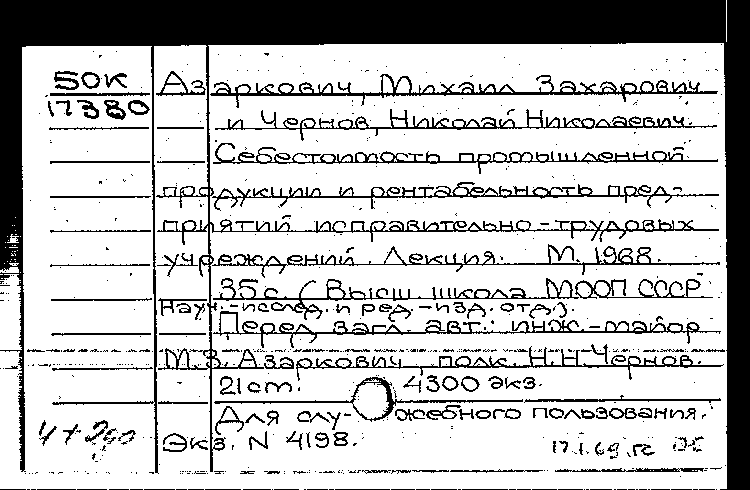 50К
17380
Азаркович, Михаил Захарович
и Чернов, Николай Николаевич.
Себестоимость промышленной
продукции и рентабельность пред-
приятий исправительно-трудовых
учреждений. Лекция. М., 1968.
35 с. (Высш. школа МООП СССР
Науч.-исслед. и ред.-изд. отд.).
Перед загл. авт.: инж.-майор
М.З. Азаркович, полк. Н.Н. Чернов.
21 cm. 4300 экз.
Для слу- жебного пользования.
Экз. N 4198.
17.1.69